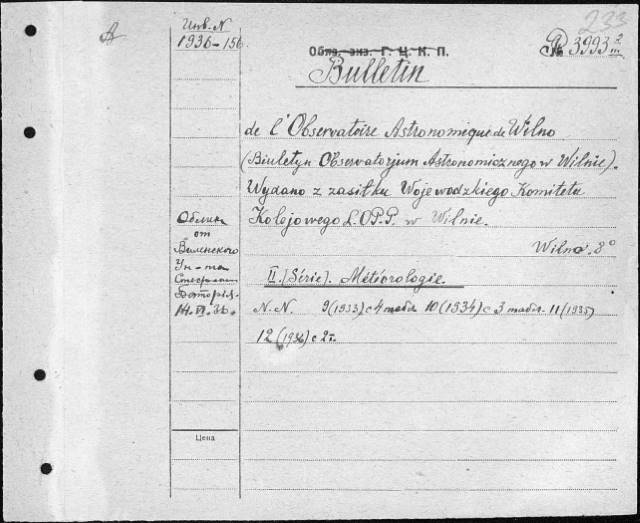 233
А
Инв. N
1936-156
Обяз. экз. Г. Ц. К. П.
№ 3993 2/III
Bulletin
de l'Observatoire Astronomique de Wilno
(Biuletyn Obserwatorjum Astronomicznego w Wilnie).
Wydano z zasiłku Wojewodzkiego Komitetu
Kolejowego L.O.P.P. w Wilnie.
Wilno. 8°
Обмен
от
Виленского
Ун-та
Стефана
Батория.
14.VI.36.
II. (Série). Météorologie.
N.N. 9 (1933) с 4 табл. 10 (1934) с 3 табл. 11 (1935)
12 (1936) с 2т.
Цена